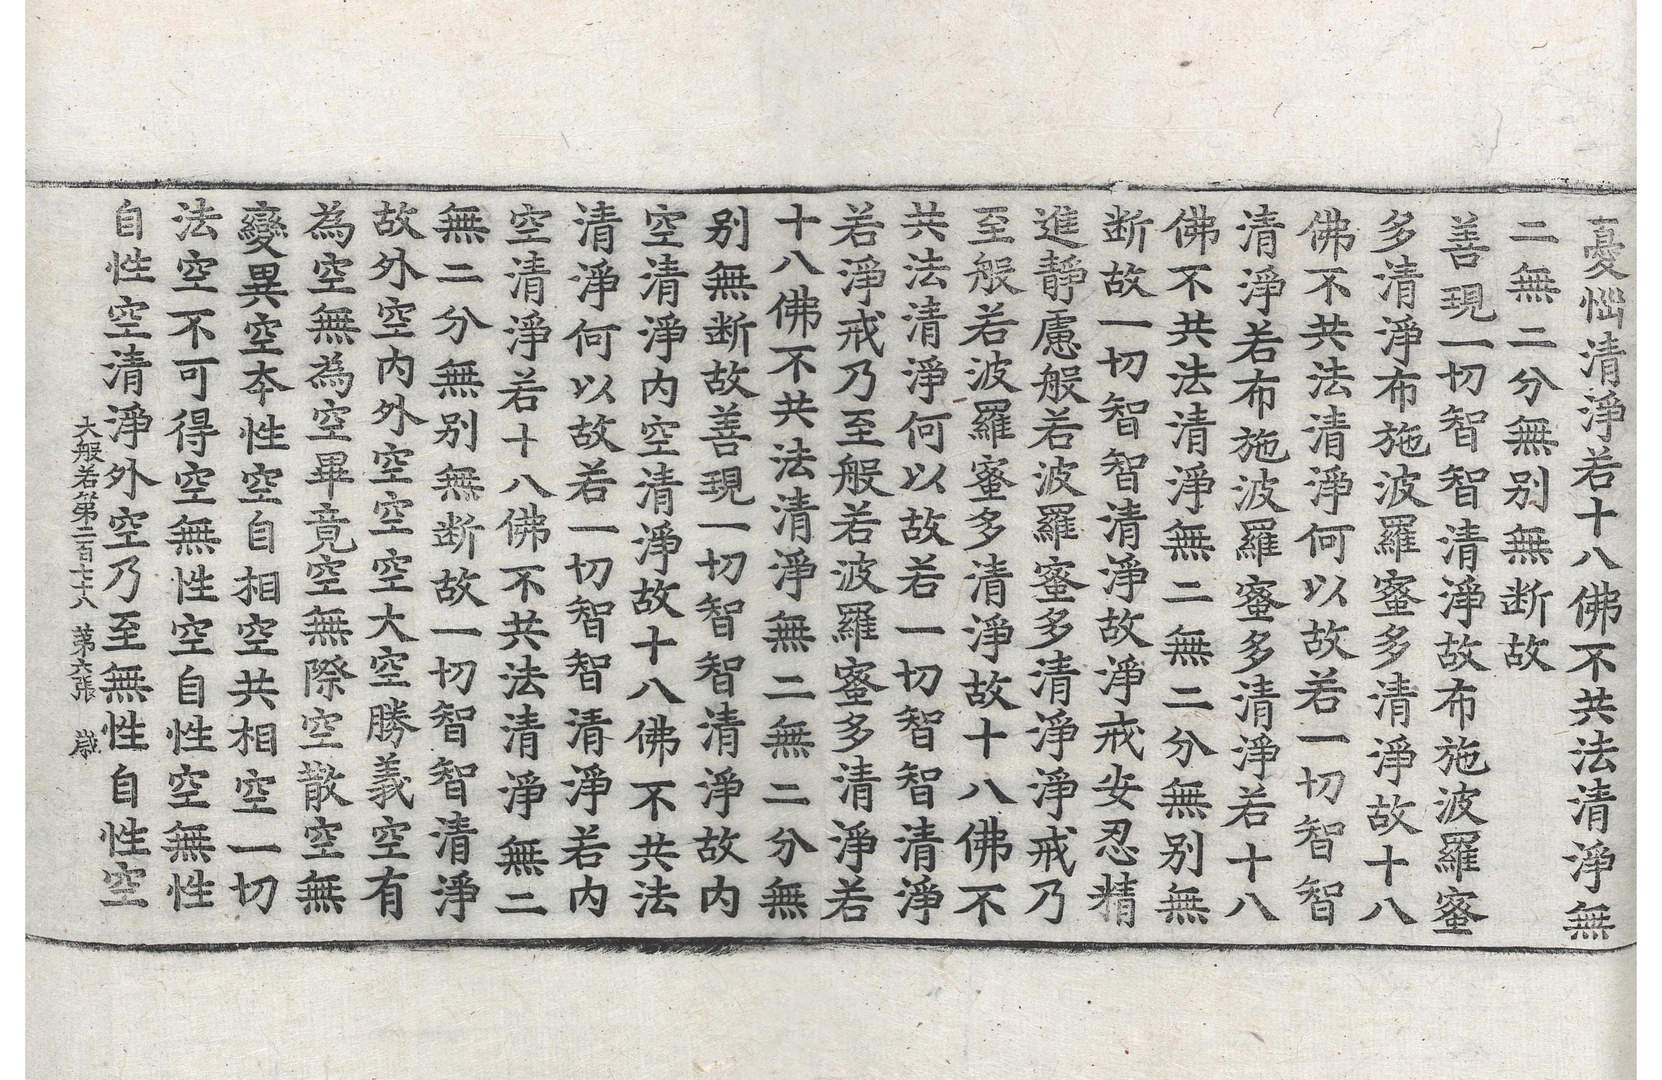 憂惱清淨若十八佛不共法清淨無
二無二分無別無断故
善現一切智智清淨故布施波羅蜜
多清淨布施波羅蜜多清淨故十八
佛不共法清淨何以故若一切智智
清淨若布施波羅蜜多清淨若十八
佛不共法清淨無二無二分無別無
断故一切智智清淨故淨戒安忍精
進靜慮般若波羅蜜多清淨淨戒乃
至般若波羅蜜多清淨故十八佛不
共法清淨何以故若一切智智清淨
若淨戒乃至般若波羅蜜多清淨若
十八佛不共法清淨無二無二分無
別無断故善現一切智智清淨故內
空清淨內空清淨故十八佛不共法
清淨何以故若一切智智清淨若內
空清淨若十八佛不共法清淨無二
無二分無別無断故一切智智清淨
故外空內外空空空大空勝義空有
為空無為空畢竟空無際空散空無
變異空夲性空自相空共相空一切
法空不可得空無性空自性空無性
自性空清淨外空乃至無性自性空
大般若第二百七十八 第六張 歲